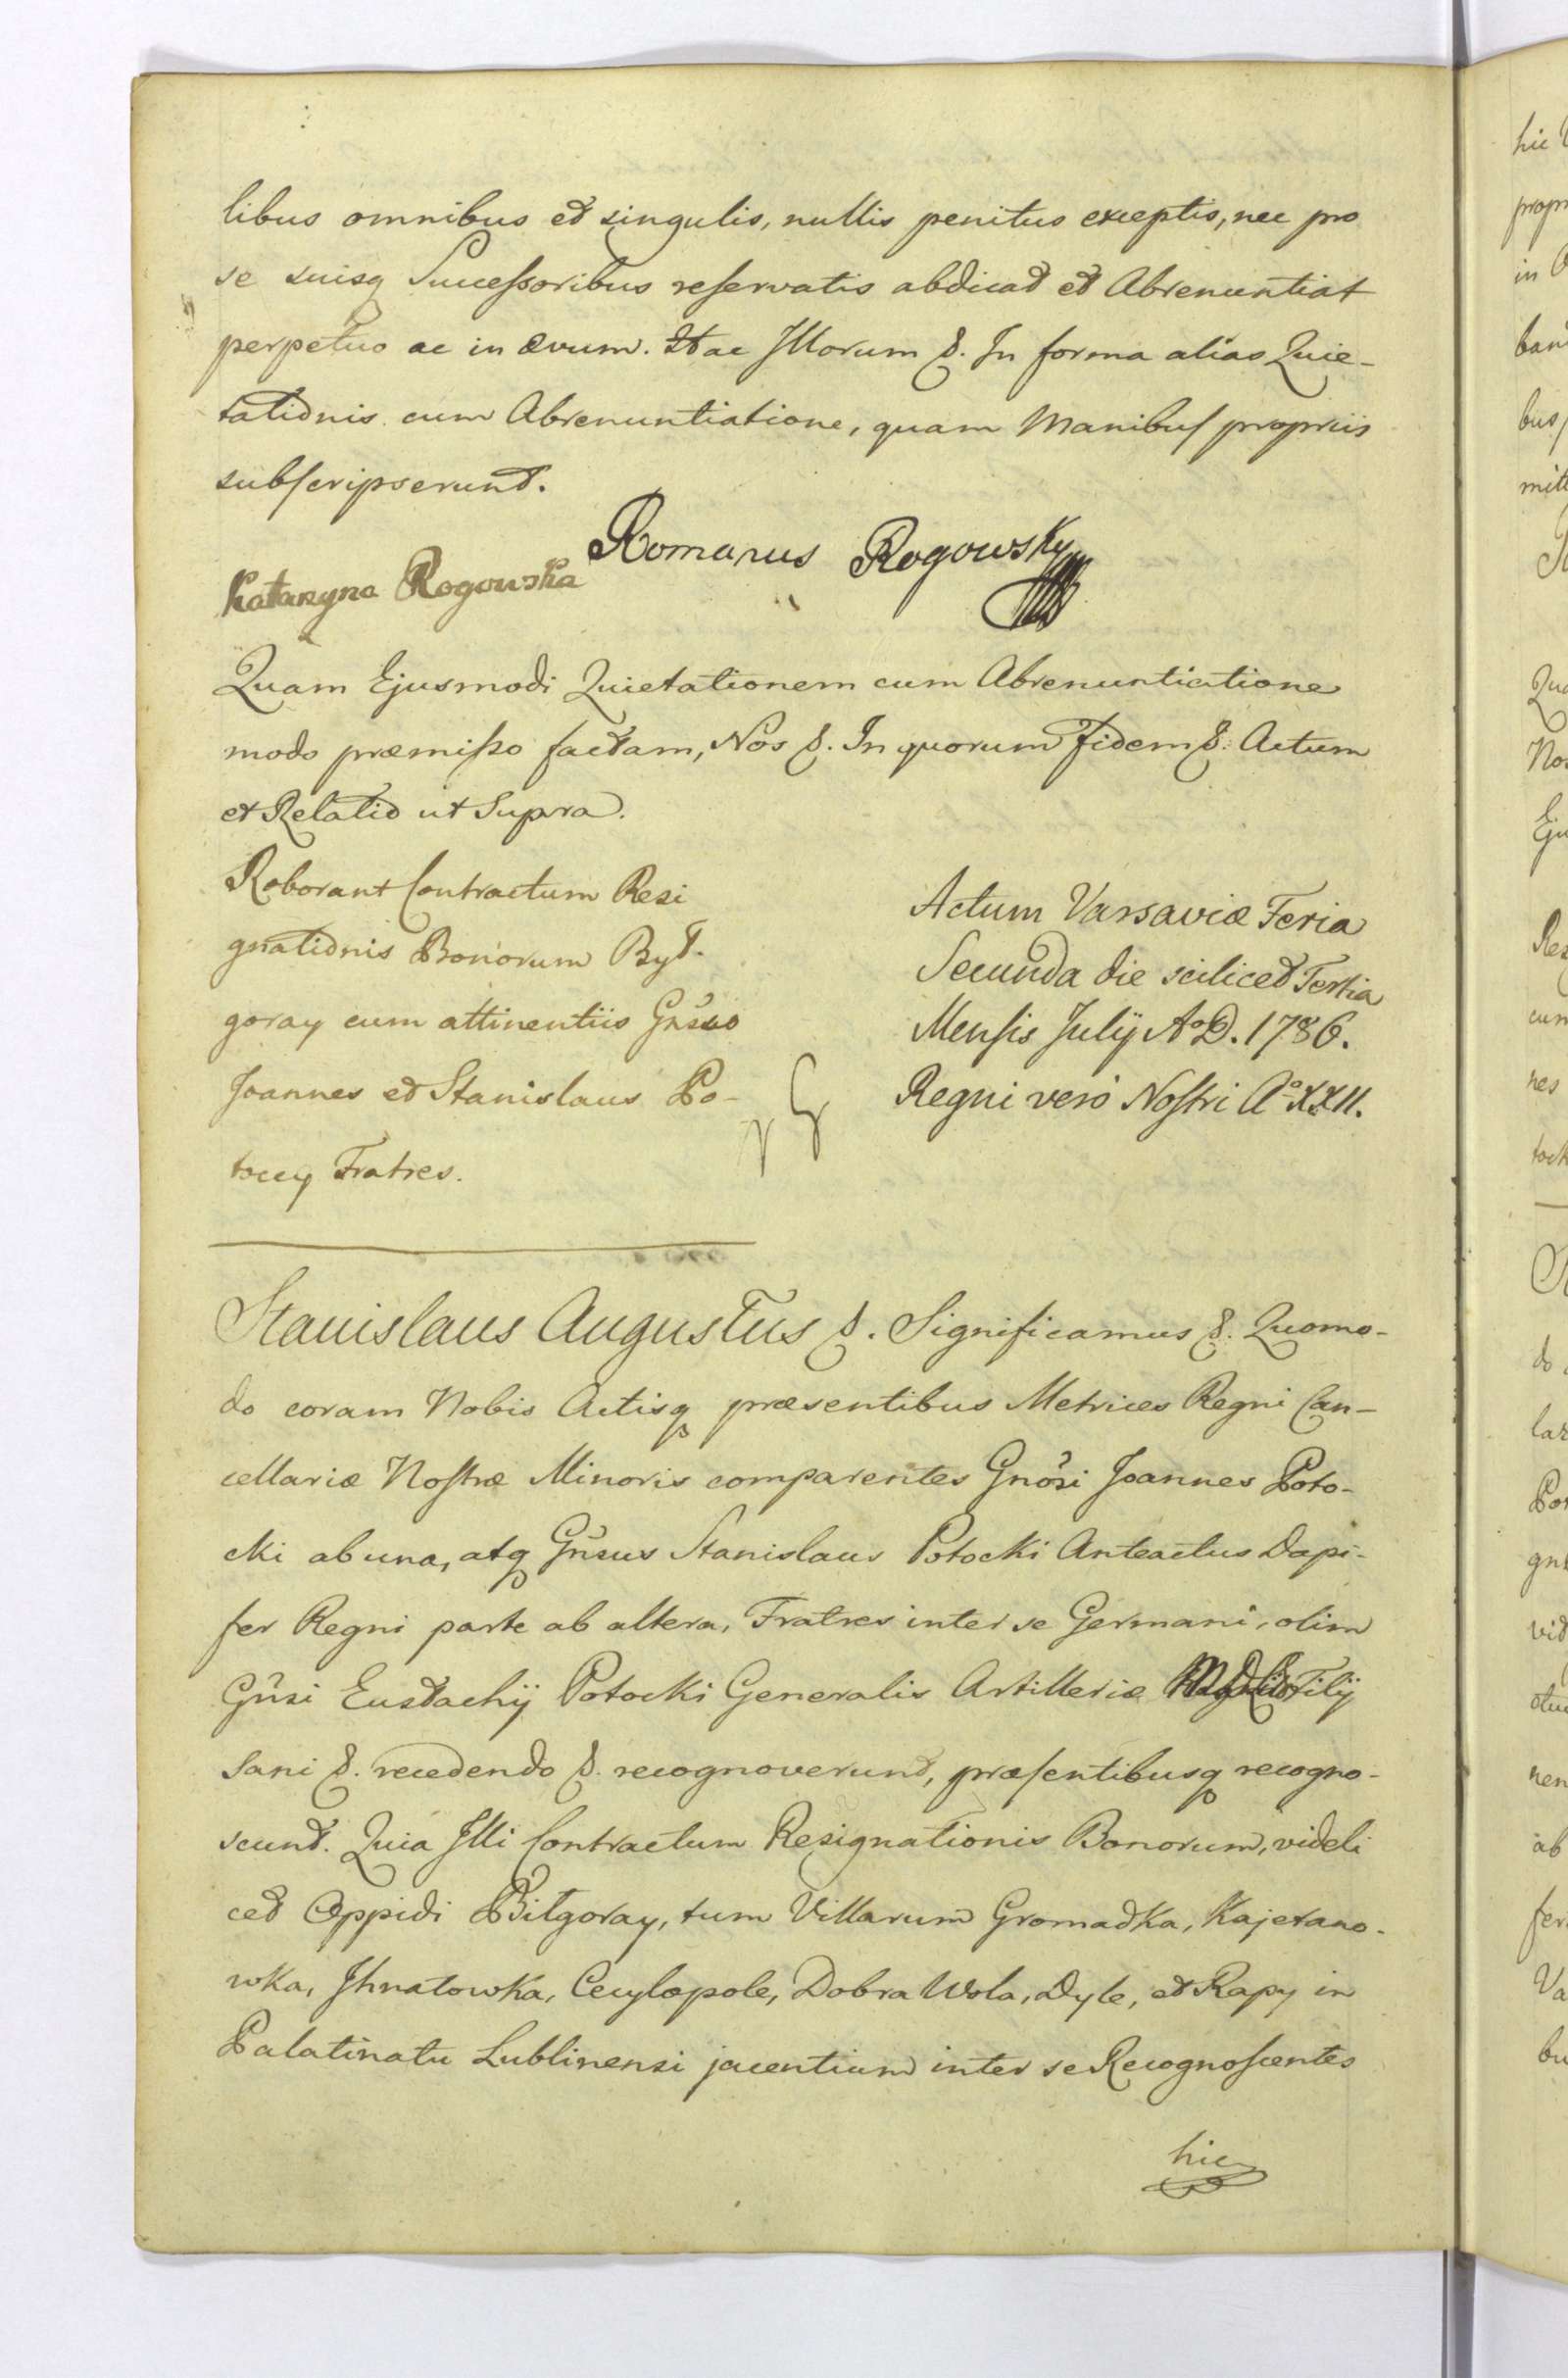 libus omnibus et singulis, nullis penitus exceptis, nec pro
se suisq Successoribus reservatis abdicat et Abrenuntiat
perpetuo ac in ævum. Hac Illorum &. In forma alias Quie-
tationis cum Abrenuntiatione, quam Manibus propriis
subscripserunt.
Romanus Rogowsky
Katarzyna Rogowska
Quam Ejusmodi Quietationem cum Abrenuntiatione
modo præmisso factam, Nos &. In quorum Fidem &. Actum
et Relatio ut Supra.
Roborant Contractum Resi
gnationis Bonorum Był-
goray cum attinentiis
Joannes et Stanislaus Po-
toccy Fratres.
Actum Varsaviæ Feria
Secunda die scilicet Tertia
Mensis Julij A°D. 1786.
Regni vero Nostri A° XXII.
Stanislaus Augustus &. Significamus &. Quomo-
do coram Nobis Actisq præsentibus Metrices Regni Can-
cellariæ Nostræ Minoris comparentes Gnosi Joannes Poto-
cki ab una, atq Gnsus Stanislaus Potocki Anteactus Dapi-
fer Regni parte ab altera, Fratres inter se Germani, olim
Gnsi Eustachij Potocki Generalis Artilleriæ Filij
Sani &. recedendo &. recognoverunt, præsentibusq recogno-
scunt. Quia Illi Contractum Resignationis Bonorum, videli
cet Oppidi Biłgoray, tum Villarum Gromadka, Kajetano-
wka, Ihnatowka, Cecylopole, Dobra Wola, Dyle, et Rapy in
Palatinatu Lublinensi jacentium inter se Recognoscentes
hic